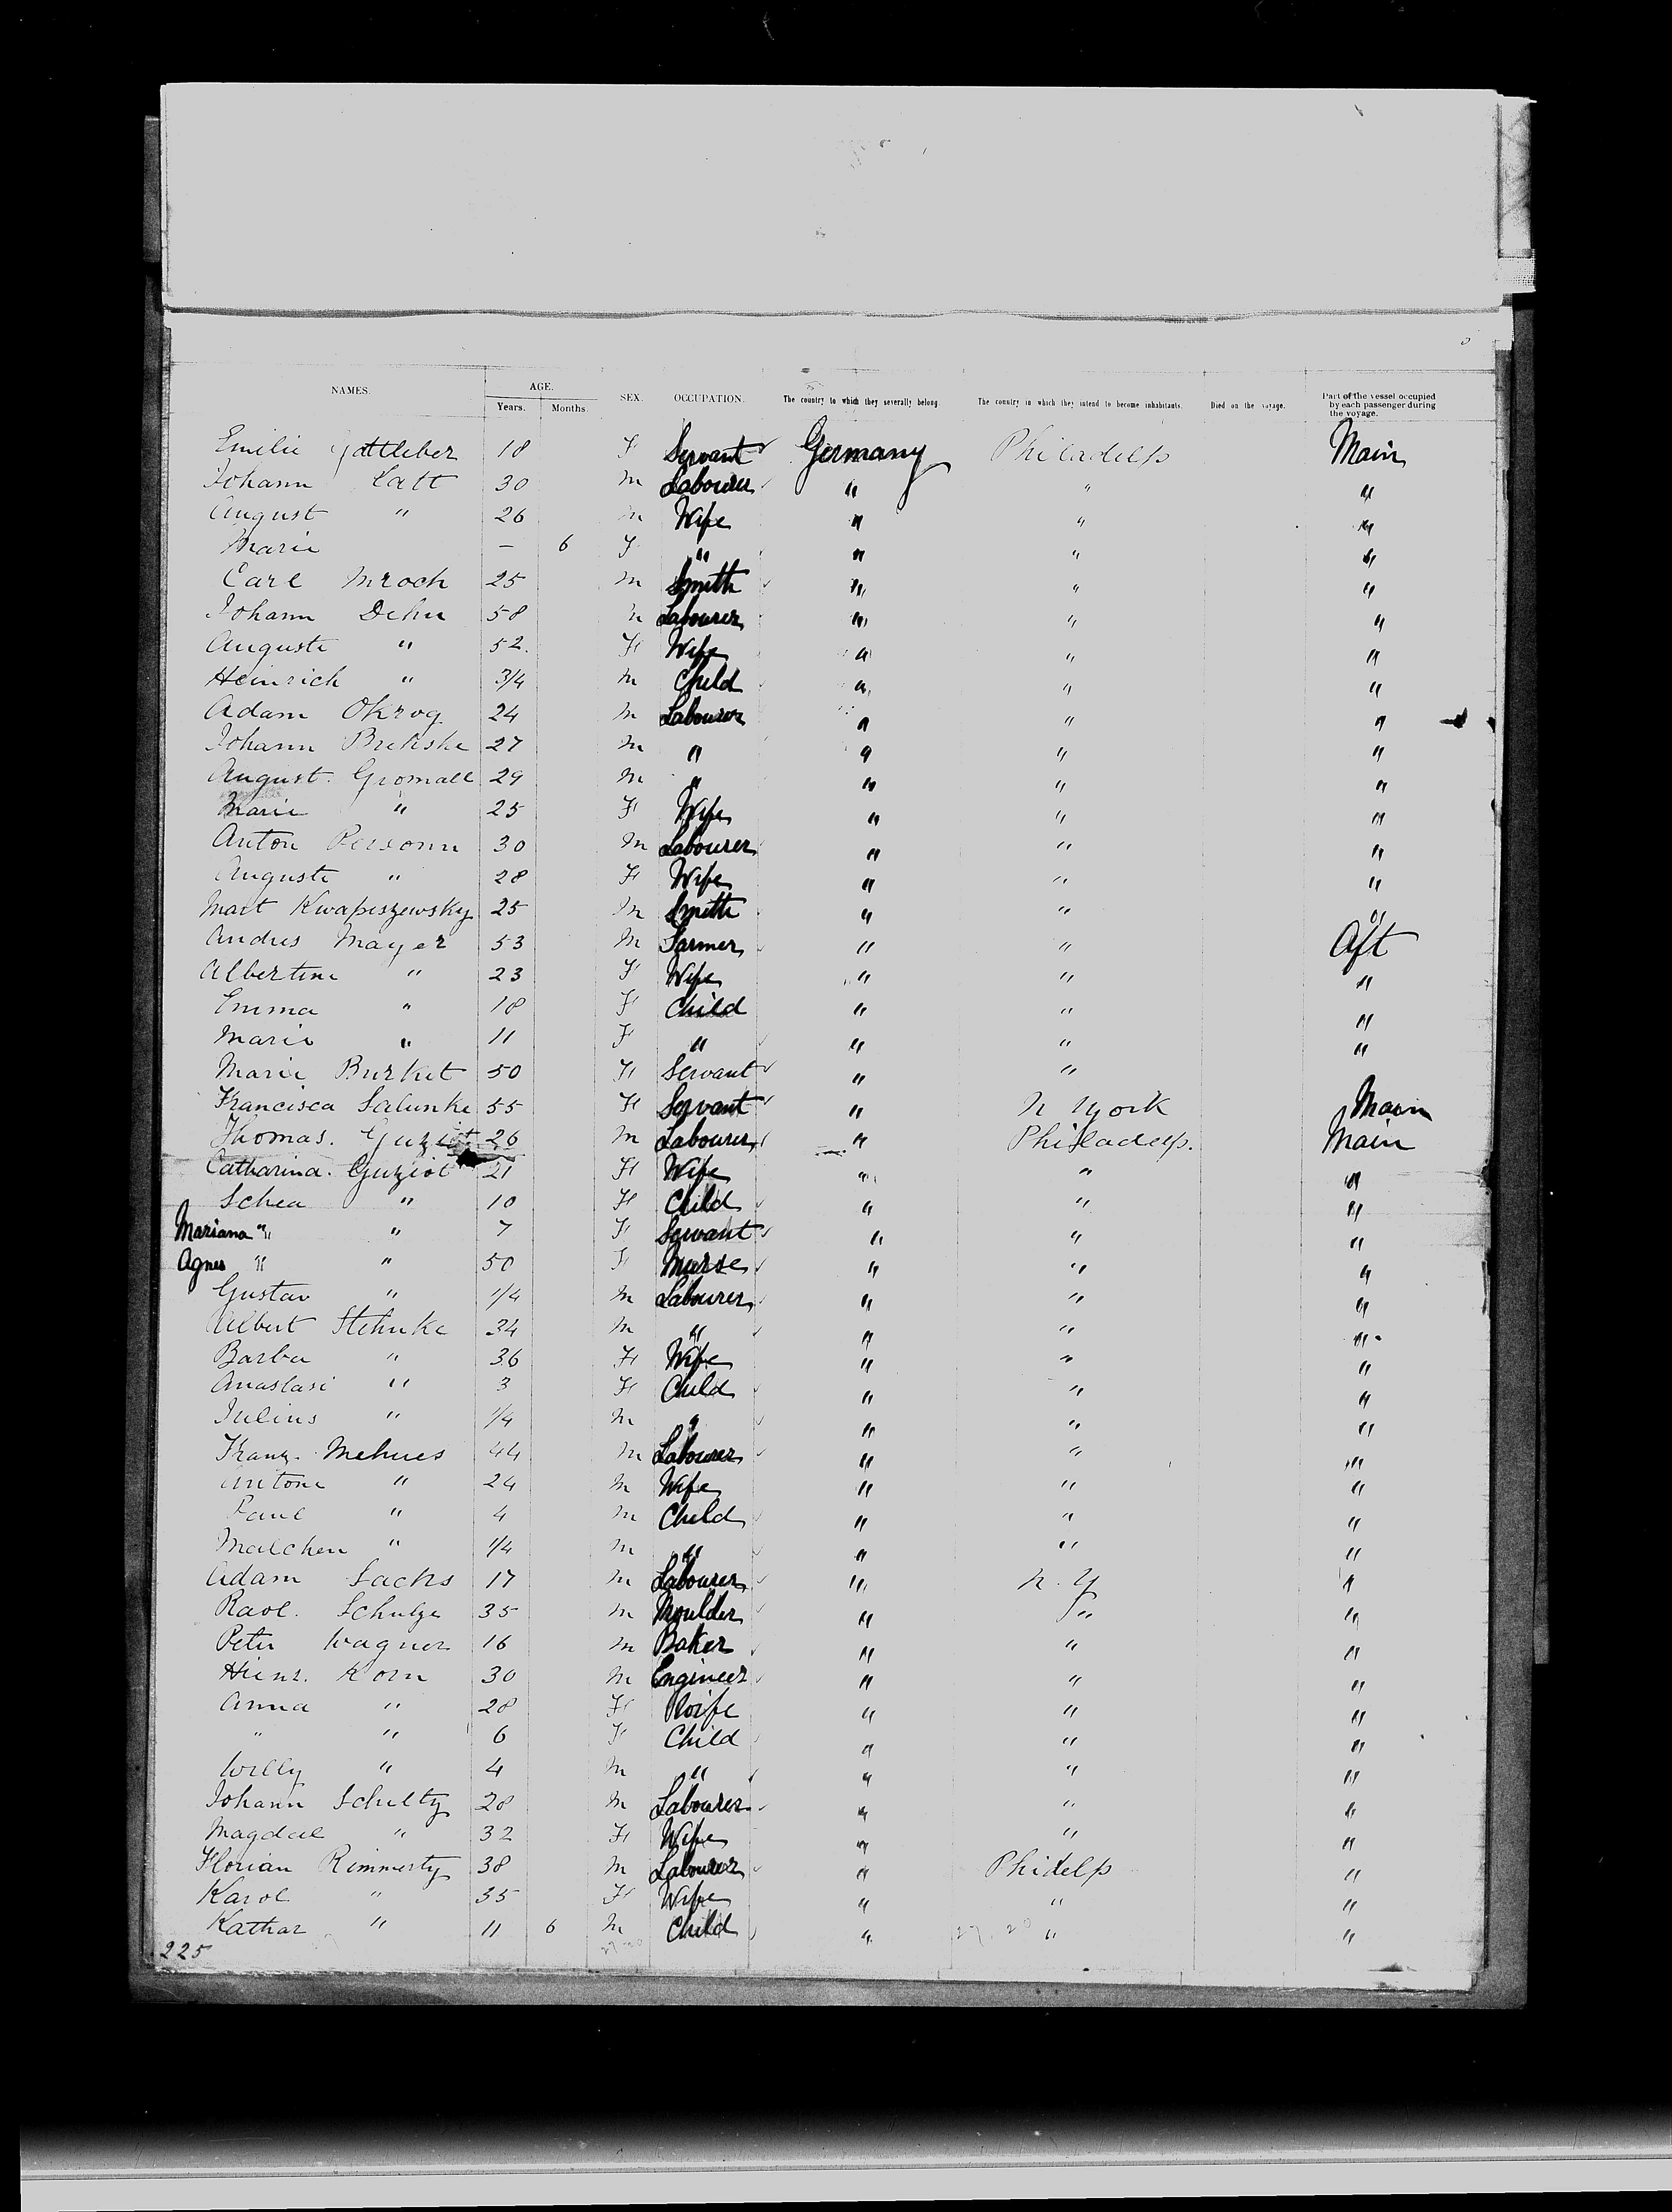 NAMES. AGE. SEX. OCCUPATION. The country to which they severally belong. The country in which they intend to become inhabitants. Died on the voyage. Part of the vessel occupied by each passenger during the voyage.
Years. Months.
Emilie Gottleber 18 F Servant Germany Philadelp Main
Johann Latt 30 m Labourer " " "
August " 26 m Wife " " "
Marie — 6 F " " " "
Carl Mroch 25 m Smith " " "
Johann Dehn 58 m Labourer " " "
Auguste " 52. F Wife " " "
Heinrich " 3/4 m Child " " "
Adam Okrog 24 m Labourer " " "
Johann 27 m " " " "
August. Gromall 29 m " " " "
Marie " 25 F Wife " " "
Anton Personn 30 m Labourer " " "
Auguste " 28 F Wife " " "
Mart Kwapiszewsky 25 m Smith " " "
Andres Mayer 53 m Farmer " " Aft
Albertine " 23 F Wife " " "
Emma " 18 F Child " " "
Marie " 11 F " " " "
Marie Burket 50 F Servant " "
Francisca Salunke 55 F Servant " N York Main
Thomas. Guziot 26 m Labourer " Philadelp. Main
Catharina. Guziot 21 F Wife " " "
Schea " 10 F Child " " "
Mariana " " 7 F Servant " " "
Agnes " " 50 F Nurse " " "
Gustav " 1/4 m Labourer " " "
Albert Stehnke 34 m " " " "
Barba " 36 F Wife " " "
Anastasi " 3 F Child " " "
Julius " 1/4 m " " " "
Franz. Mehues 44 m Labourer " " "
Antone " 24 m Wife " " "
Paul " 4 m Child " " "
Malchen " 1/4 m " " " "
Adam Sachs 17 m Labourer " N. Y "
Raol. Schulze 35 m Moulder " " "
Peter Wagner 16 m Baker " " "
Hienr. Korn 30 m Engineer " " "
Anna " 28 F Wife " " "
" " 6 F Child " " "
Willy " 4 m " " " "
Johann Schultz 28 m Labourer " " "
Magdal " 32 F Wife " " "
Florian Rimmerty 38 m Labourer " Phidelp "
Karol " 35 F Wife " " "
Kathar " 11 6 m Child " " "
225